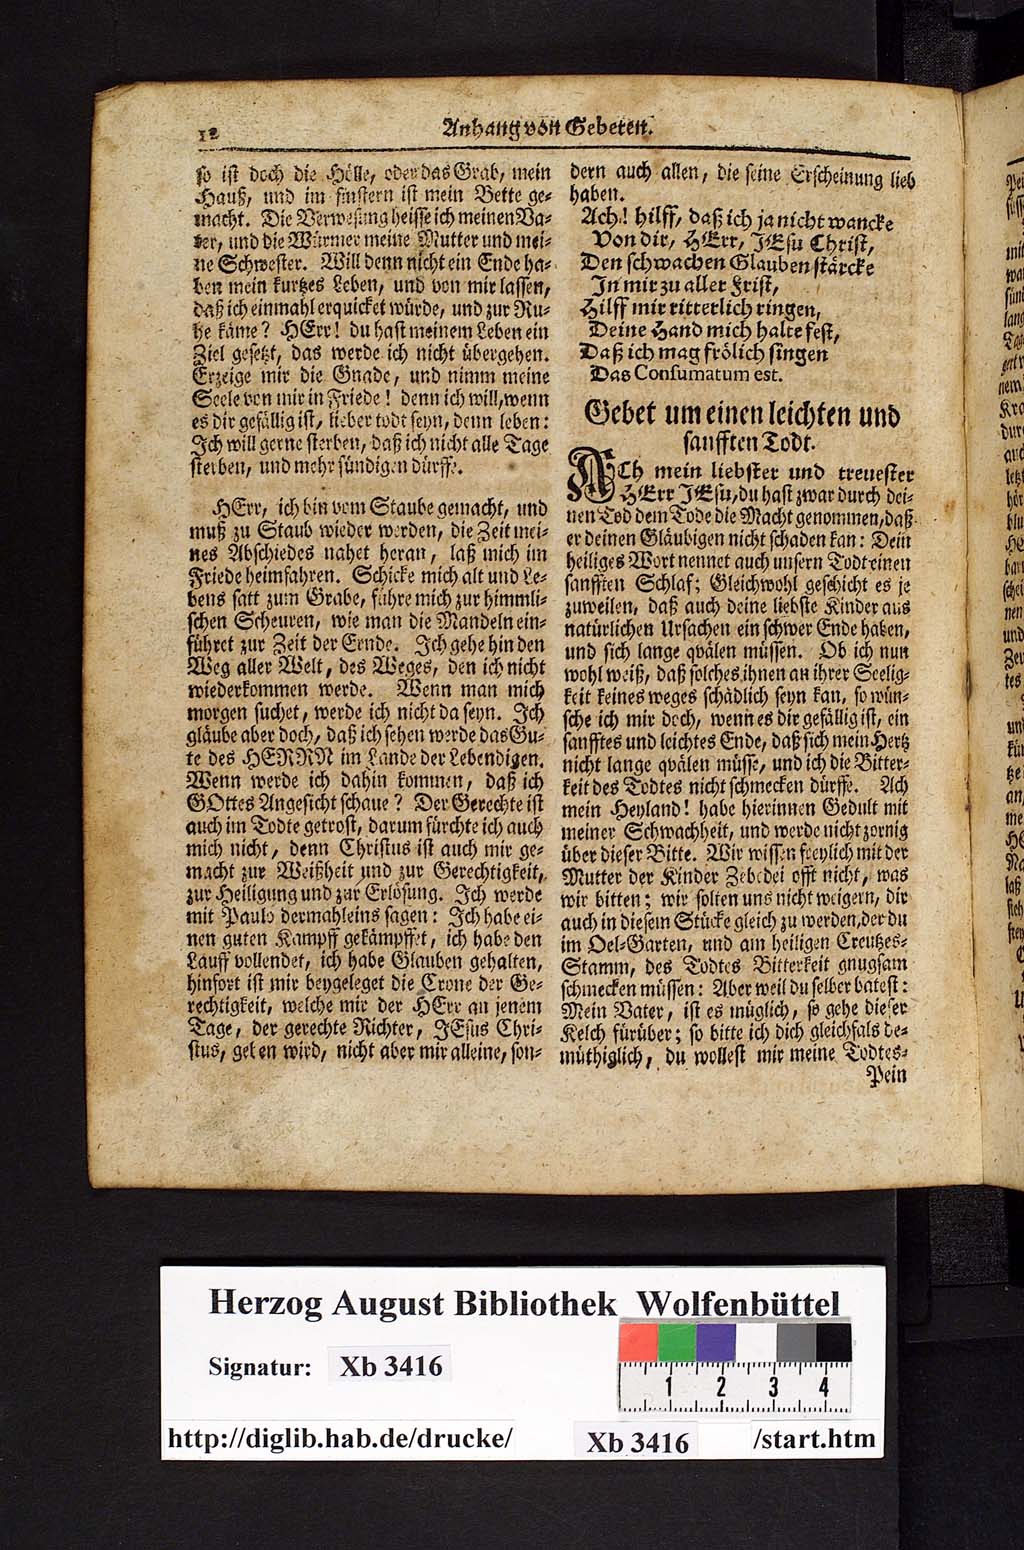 12
Anhang von Gebeten.
so ist doch die Hölle, oder das Grab, mein
Hauß, und im finstern ist mein Bette ge-
macht. Die Verwesung heisse ich meinen Va-
ter, und die Würmer meine Mutter und mei-
ne Schwester. Will denn nicht ein Ende ha-
ben mein kurtzes Leben, und von mir lassen,
daß ich einmahl erquicket würde, und zur Ru-
he käme? HErr! du hast meinem Leben ein
Ziel gesetzt, das werde ich nicht übergehen.
Erzeige mir die Gnade, und nimm meine
Seele von mir in Friede! denn ich will, wenn
es dir gefällig ist, lieber todt seyn, denn leben:
Ich will gerne sterben, daß ich nicht alle Tage
sterben, und mehr sündigen dürffe.
HErr, ich bin vom Staube gemacht, und
muß zu Staub wieder werden, die Zeit mei-
nes Abschiedes nahet heran, laß mich im
Friede heimfahren. Schicke mich alt und Le-
bens satt zum Grabe, führe mich zur himmli-
schen Scheuren, wie man die Mandeln ein-
führet zur Zeit der Ernde. Ich gehe hin den
Weg aller Welt, des Weges, den ich nicht
wiederkommen werde. Wenn man mich
morgen suchet, werde ich nicht da seyn. Ich
gläube aber doch, daß ich sehen werde das Gu-
te des HERRN im Lande der Lebendigen.
Wenn werde ich dahin kommen, daß ich
GOttes Angesicht schaue? Der Gerechte ist
auch im Todte getrost, darum fürchte ich auch
mich nicht, denn Christus ist auch mir ge-
macht zur Weißheit und zur Gerechtigkeit,
zur Heiligung und zur Erlösung. Ich werde
mit Paulo dermahleins sagen: Ich habe ei-
nen guten Kampff gekämpffet, ich habe den
Lauff vollendet, ich habe Glauben gehalten,
hinfort ist mir beygeleget die Crone der Ge-
rechtigkeit, welche mir der HErr an jenem
Tage, der gerechte Richter, JEsus Chri-
stus, geben wird, nicht aber mir alleine, son-
dern auch allen, die seine Erscheinung lieb
haben.
Ach! hilff, daß ich ja nicht wancke
Von dir, HErr, JEsu Christ,
Den schwachen Glauben stärcke
In mir zu aller Frist,
Hilff mir ritterlich ringen,
Deine Hand mich halte fest,
Daß ich mag frölich singen
Das Consumatum est.
Gebet um einen leichten und
sanfften Todt.
ACh mein liebster und treuester
HErr JEsu, du hast zwar durch dei-
nen Tod dem Tode die Macht genommen, daß
er deinen Gläubigen nicht schaden kan: Dein
heiliges Wort nennet auch unsern Todt einen
sanfften Schlaf; Gleichwohl geschicht es je
zuweilen, daß auch deine liebste Kinder aus
natürlichen Ursachen ein schwer Ende haben,
und sich lange qvälen müssen. Ob ich nun
wohl weiß, daß solches ihnen an ihrer Seelig-
keit keines weges schädlich seyn kan, so wün-
sche ich mir doch, wenn es dir gefällig ist, ein
sanfftes und leichtes Ende, daß sich mein Hertz
nicht lange qvälen müsse, und ich die Bitter-
keit des Todtes nicht schmecken dürffe. Ach
mein Heyland! habe hierinnen Gedult mit
meiner Schwachheit, und werde nicht zornig
über dieser Bitte. Wir wissen freylich mit der
Mutter der Kinder Zebedei offt nicht, was
wir bitten; wir solten uns nicht weigern, dir
auch in diesem Stücke gleich zu werden, der du
im Oel-Garten, und am heiligen Creutzes-
Stamm, des Todtes Bitterkeit gnugsam
schmecken müssen: Aber weil du selber batest:
Mein Vater, ist es müglich, so gehe dieser
Kelch fürüber; so bitte ich dich gleichfals de-
müthiglich, du wollest mir meine Todtes-
Pein
Herzog August Bibliothek Wolfenbüttel
Signatur: Xb 3416
1 2 3 4
http://diglib.hab.de/drucke/ Xb 3416 /start.htm